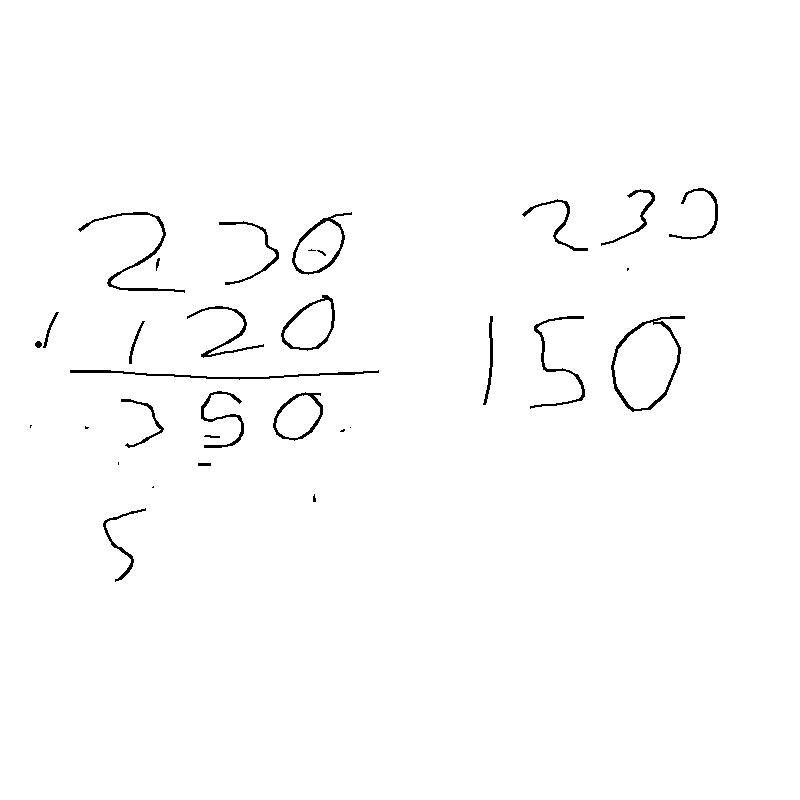 230
120
350
5
230
150